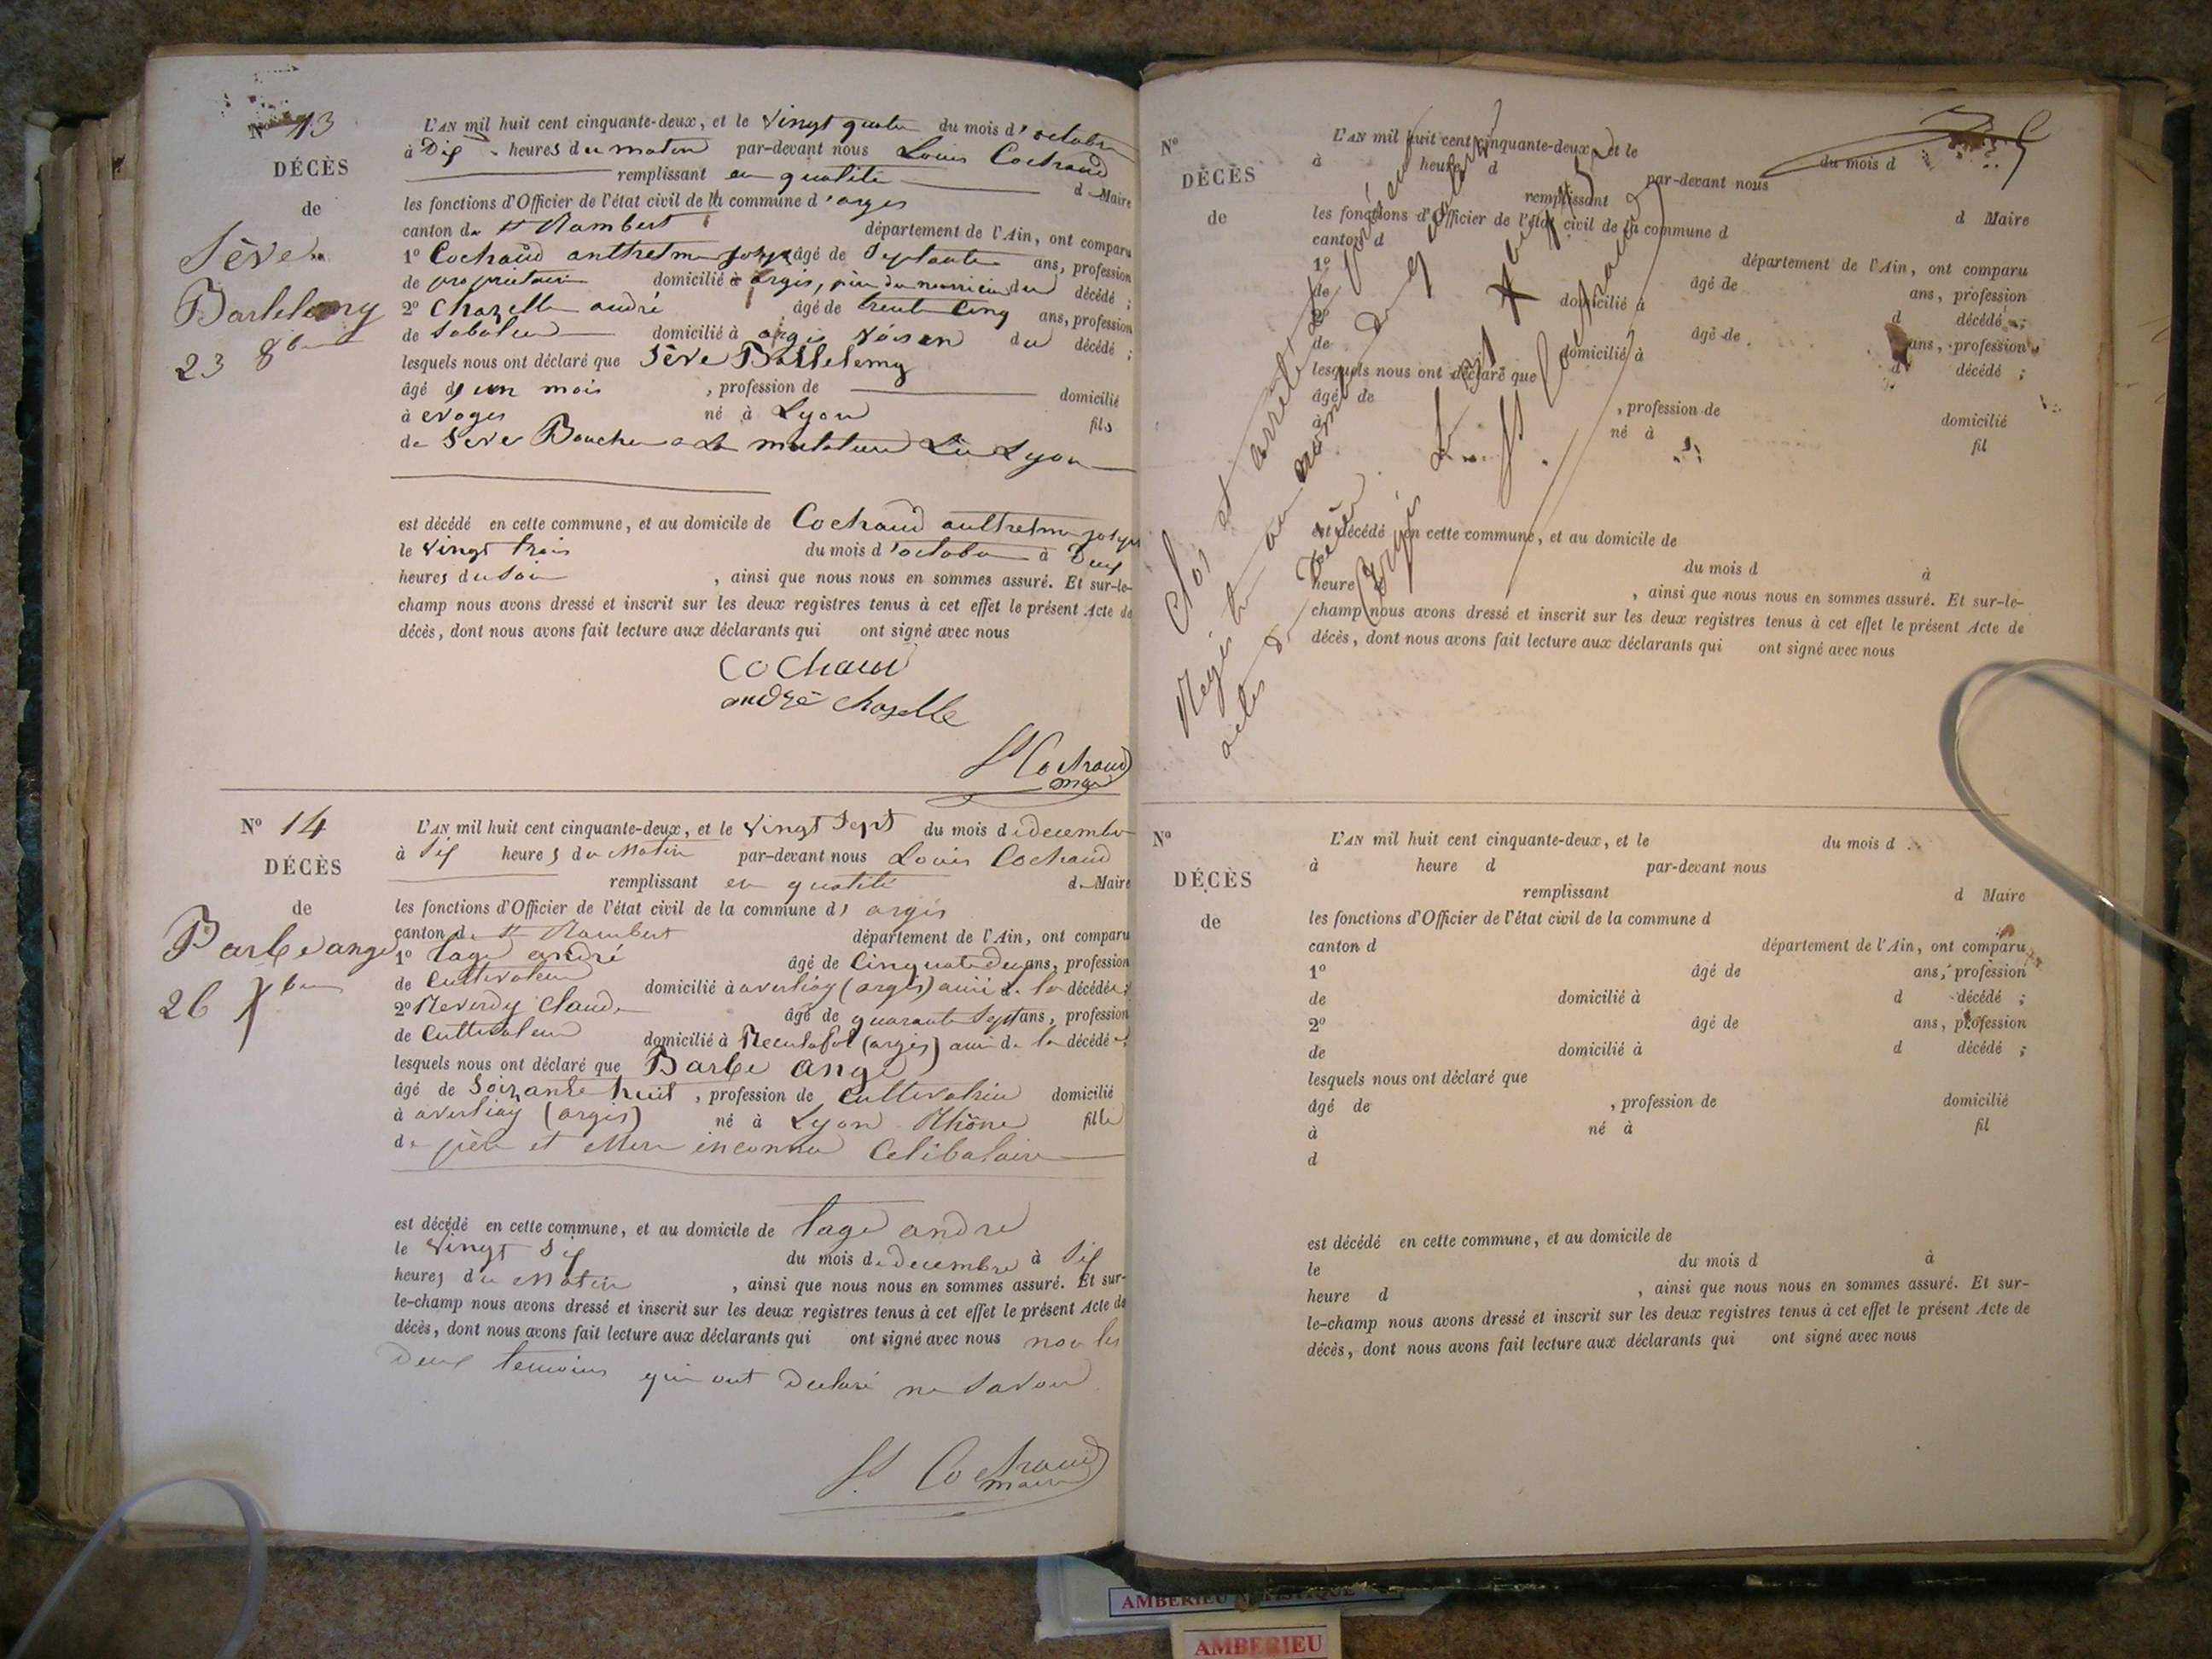 Nº 13
DÉCÈS
de
Sève
Bartelemy
23 8bre
L'AN mil huit cent cinquante-deux, et le Vingt quatre du mois d'octobre
à Dix heures du matin par-devant nous Louis Cochaud
remplissant en qualité d Maire
les fonctions d'Officier de l'état civil de la commune d'argis
canton de St Rambert département de l'Ain, ont comparu
1º Cochaud anthelme âgé de Septante ans, profession
de propriétaire domicilié à argis, père du nourricier du décédé ;
2º Chazelle andré âgé de trente Cinq ans, profession
de Saboteur domicilié à argis Voisin du décédé ;
lesquels nous ont déclaré que Sève Bartelemy
âgé d un mois , profession de domicilié
à évoges né à Lyon fils
de Sève Boucher a La mulatiere Lès Lyon
est décédé en cette commune, et au domicile de Cochaud anthelme
le Vingt trois du mois d'octobre à Deux
heures du Soir , ainsi que nous nous en sommes assuré. Et sur-le-
champ nous avons dressé et inscrit sur les deux registres tenus à cet effet le présent Acte de
décès, dont nous avons fait lecture aux déclarants qui ont signé avec nous
Cochaud
andré chazelle
Ls Cochaud
maire
Nº 14
DÉCÈS
de
Barbe ange
26 Xbre
L'AN mil huit cent cinquante-deux, et le Vingt Sept du mois de decembre
à Six heures du Matin par-devant nous Louis Cochaud
remplissant en qualité d Maire
les fonctions d'Officier de l'état civil de la commune d' argis
canton de St Rambert département de l'Ain, ont comparu
1º tage andré âgé de Cinquante deux ans, profession
de Cultivateur domicilié à averliaz (argis) ami de la décédée ;
2º Reverdy Claude âgé de quarante Sept ans, profession
de Cultivateur domicilié à Reculafol (argis) ami de la décédée ;
lesquels nous ont déclaré que Barbe ange
âgé de Soixante huit , profession de Cultivatrice domicilié
à averliaz (argis) né à Lyon Rhône fille
de père et Mère inconnu Celibataire
est décédé en cette commune, et au domicile de tage andre
le Vingt Six du mois de decembre à Six
heures du Matin , ainsi que nous nous en sommes assuré. Et sur-
le-champ nous avons dressé et inscrit sur les deux registres tenus à cet effet le présent Acte de
décès, dont nous avons fait lecture aux déclarants qui ont signé avec nous non les
Deux temoins qui ont Declaré ne Savoir
Ls Cochaud
maire
Nº
DÉCÈS
de
L'AN mil huit cent cinquante-deux, et le du mois d
à heure d par-devant nous
remplissant d Maire
les fonctions d'Officier de l'état civil de la commune d
canton d département de l'Ain, ont comparu
1º âgé de ans, profession
de domicilié à d décédé ;
2º âgé de ans, profession
de domicilié à d décédé ;
lesquels nous ont déclaré que
âgé de , profession de domicilié
à né à fil
est décédé en cette commune, et au domicile de
du mois d à
heure , ainsi que nous nous en sommes assuré. Et sur-le-
champ nous avons dressé et inscrit sur les deux registres tenus à cet effet le présent Acte de
décès, dont nous avons fait lecture aux déclarants qui ont signé avec nous
Clos et arrêté le présent
Registre au nombre de quatorze
actes de Décès
Argis Le 31 Xbre 1852
Ls Cochaud
Nº
DÉCÈS
de
L'AN mil huit cent cinquante-deux, et le du mois d
à heure d par-devant nous
remplissant d Maire
les fonctions d'Officier de l'état civil de la commune d
canton d département de l'Ain, ont comparu
1º âgé de ans, profession
de domicilié à d décédé ;
2º âgé de ans, profession
de domicilié à d décédé ;
lesquels nous ont déclaré que
âgé de , profession de domicilié
à né à fil
d
est décédé en cette commune, et au domicile de
le du mois d à
heure d , ainsi que nous nous en sommes assuré. Et sur-
le-champ nous avons dressé et inscrit sur les deux registres tenus à cet effet le présent Acte de
décès, dont nous avons fait lecture aux déclarants qui ont signé avec nous
AMBERIEU
AMBERIEU